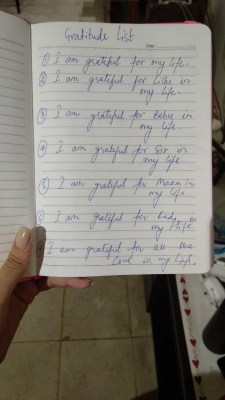 Gratitude List
Date:
1) I am grateful for my life.
2) I am grateful for in
my life.
3) I am grateful for in
my life
4) I am grateful for Sir in
my life.
5) I am grateful for Maam in
my life.
6) I am grateful for Kids in
my life.
I am grateful for all the
Love in my life.